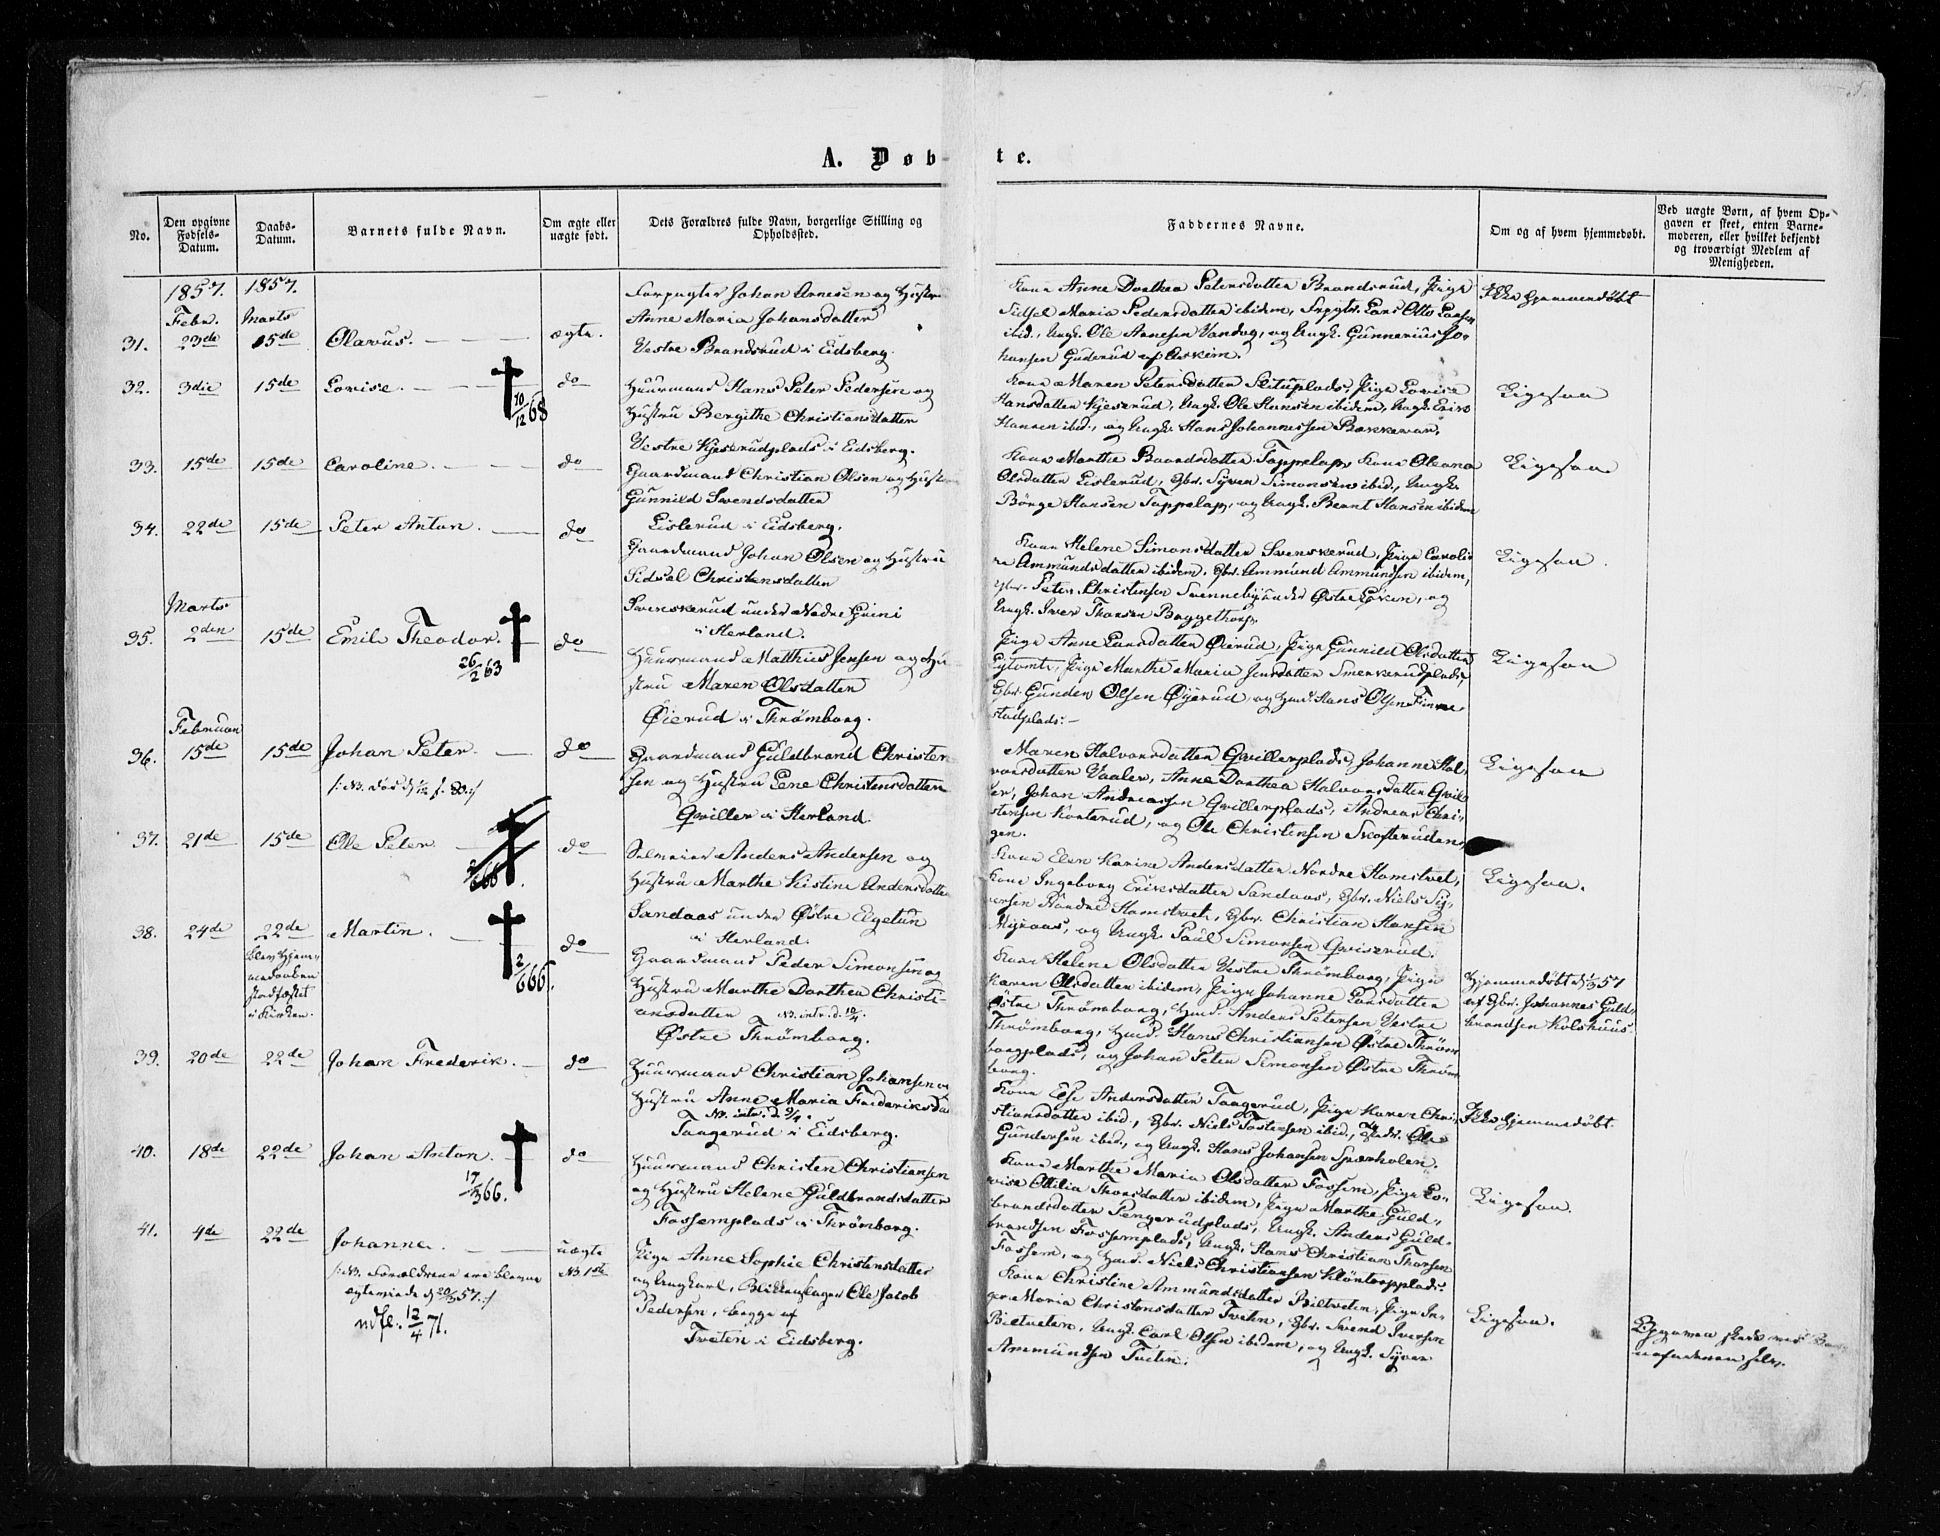 A. Døb-te.
No.
Den opgivne Fødsels-Datum.
Daabs-Datum.
Barnets fulde Navn.
Om ægte eller uægte født.
Dets Forældres fulde Navn, borgerlige Stilling og Opholdssted.
Faddernes Navne.
Om og af hvem hjemmedøbt.
Ved uægte Børn, af hvem Op-
gaven er skeet, enten Barne-
moderen, eller hvilket bekjendt
og troværdigt Medlem af
Menigheden.
1857. 1857.
Febr. Marts
31. 23de 15de Olavus. ægte.
Forpagter Johan Arnesen og Hustru
Anne Maria Johansdatter
Vestre Brandsrud i Eidsberg.
Kone Anne Dorthea Petersdatter Brandsrud, Pige
Sidsel Maria Pedersdatter ibidem, Frpgtr. Lars Otto Larsen
ibid., Ungk. Ole Arnesen Vandog, og Ungk. Gunnerius Jo-
hansen Guderud af Askim.
Ikke hjemmedøbt
32. 3die 15de Lovise. do
10/12 68
Huusmand Hans Peter Pedersen og
Hustru Bergithe Christiansdatter
Vestre Kjeserudplads i Eidsberg.
Kone Maren Petersdatter Slituplads, Pige Lovise
Hansdatter Kjeserud, Ungk. Ole Hansen ibidem, Ungk. Eric
Hansen ibid., og Ungk. Hans Johannessen Bækkevar.
Ligesaa
33. 15de 15de Caroline. do
Gaardmand Christian Olsen og Hustru
Gunnild Svendsdatter
Lislerud i Eidsberg.
Kone Marthe Baardsdatter Tappelap, Kone Oleana
Olsdatter Lislerud, Gbr. Syver Simonsen ibid., Ungk.
Børge Hansen Tappelap, og Ungk. Bernt Hansen ibidem
Ligesaa
34. 22de 15de Peter Anton. do
Gaardmand Johan Olsen og Hustru
Sidsel Christensdatter
Svenskerud under Nedre Guini
i Herland.
Kone Helene Simonsdatter Svenskerud, Pige Caroli-
ne Ammundsdatter ibidem, Gbr. Ammund Ammundsen ibidem,
Gbr. Peter Christensen Svenneby under Østre Løken, og
Ungk. Iver Thorsen Baggethorp.
Ligesaa.
Marts
35. 2den 15de Emil Theodor. do
26/2 63
Huusmand Matthias Jensen og Hu-
stru Maren Olsdatter
Øierud i Thrømborg.
Pige Anne Larsdatter Øierud, Pige Gunnild Olsdatter
Lytomt, Pige Marthe Maria Jensdatter Smerkerudplads,
Gbr. Gunder Olsen Øyerud, og Hmd. Hans Olsen Finne-
stadplads.
Ligesaa
Februar
36. 15de 15de Johan Peter. do
Gaardmand Guldbrand Christen-
sen og Hustru Lene Christensdatter
Qviller i Herland.
Maren Halvorsdatter Qvillerplads, Johanne Hal-
vorsdatter Vaaler, Anne Dorthea Halvorsdatter Qvil-
ler, Johan Andreassen Qvillerplads, Andreas Chri-
stensen Korterud, og Ole Christensen Skofterudens
gen.
Ligesaa
37. 21de 15de Ole Peter. do
Selveier Anders Andersen og
Hustru Marthe Kistine Andersdatter
Sandaas under Østre Elgetun
i Herland.
Kone Elen Karine Andersdatter Nordre Homstvet,
Kone Ingeborg Eriksdatter Sandaas, Gbr. Niels Sy-
versen Nordre Homstvet, Gbr. Christian Hansen
Myraas, og Ungk. Paul Simonsen Qviserud.
Ligesaa.
38. 24de 22de Martin. do
2/6 66.
Blev Hjem-
medaaben
stadfæstet
i Kirken.
Gaardmand Peder Simonsen og
Hustru Marthe Dorthea Christi-
ansdatter NB. intr. d. 12/4.
Østre Thrømborg.
Kone Helene Olsdatter Vestre Thrømborg, Pige
Karen Olsdatter ibidem, Pige Johanne Larsdatter
Østre Thrømborg, Hmd. Anders Petersen Vestre
Thrømborg, Hmd. Hans Christiansen Østre Thrøm-
borgplads, og Johan Peter Simonsen Østre Thrøm-
borg.
af Gbr. Johannes Guld-
brandsen Kolshuus.
39. 20de 22de Johan Frederik. do
Huusmand Christian Johansen og
Hustru Anne Maria Frederiksda
NB. intr. d. 9/4.
Taagerud i Eidsberg.
Kone Else Andersdatter Taagerud, Pige Karen Chri-
stiansdatter ibid., Gbr. Niels Torstensen ibid., Ole
Gundersen ibid., og Ungk. Hans Johansen Sparholen.
Ikke hjemmedøbt
40. 18de 22de Johan Anton. do
17/3 66.
Huusmand Christen Christiansen
og Hustru Helene Guldbrandsdatter
Fossemplads i Thrømborg.
Kone Marthe Maria Olsdatter Fossem, Pige Lo-
vise Ottilia Thorsdatter ibidem, Pige Marthe Guld-
brandsdatter Pengerudplads, Ungk. Anders Guld-
brandsen Fossemplads, Ungk. Hans Christian Thorsen
Fossem, og Hmd. Niels Christiansen Klöntorpplads.
Ligesaa.
41. 4de 22de Johanne. uægte
NB 1ste
/: NB. Forældrene ere blevne
ægteviede d. 20/3 57. :/
udfl. 12/4 71.
Pige Anne Sophie Christensdatter
og Ungkarl, Blikkenslager Ole Jacob
Pedersen, begge af
Tveten i Eidsberg.
Kone Christine Ammundsdatter Biltveten, Pige In-
ger Maria Christensdatter Tveten, Gbr. Svend Iversen
Biltveten, Ungk. Carl Olsen ibidem, og Ungk. Syver
Ammundsen Tveten.
Ligesaa.
Opgaven skede ved